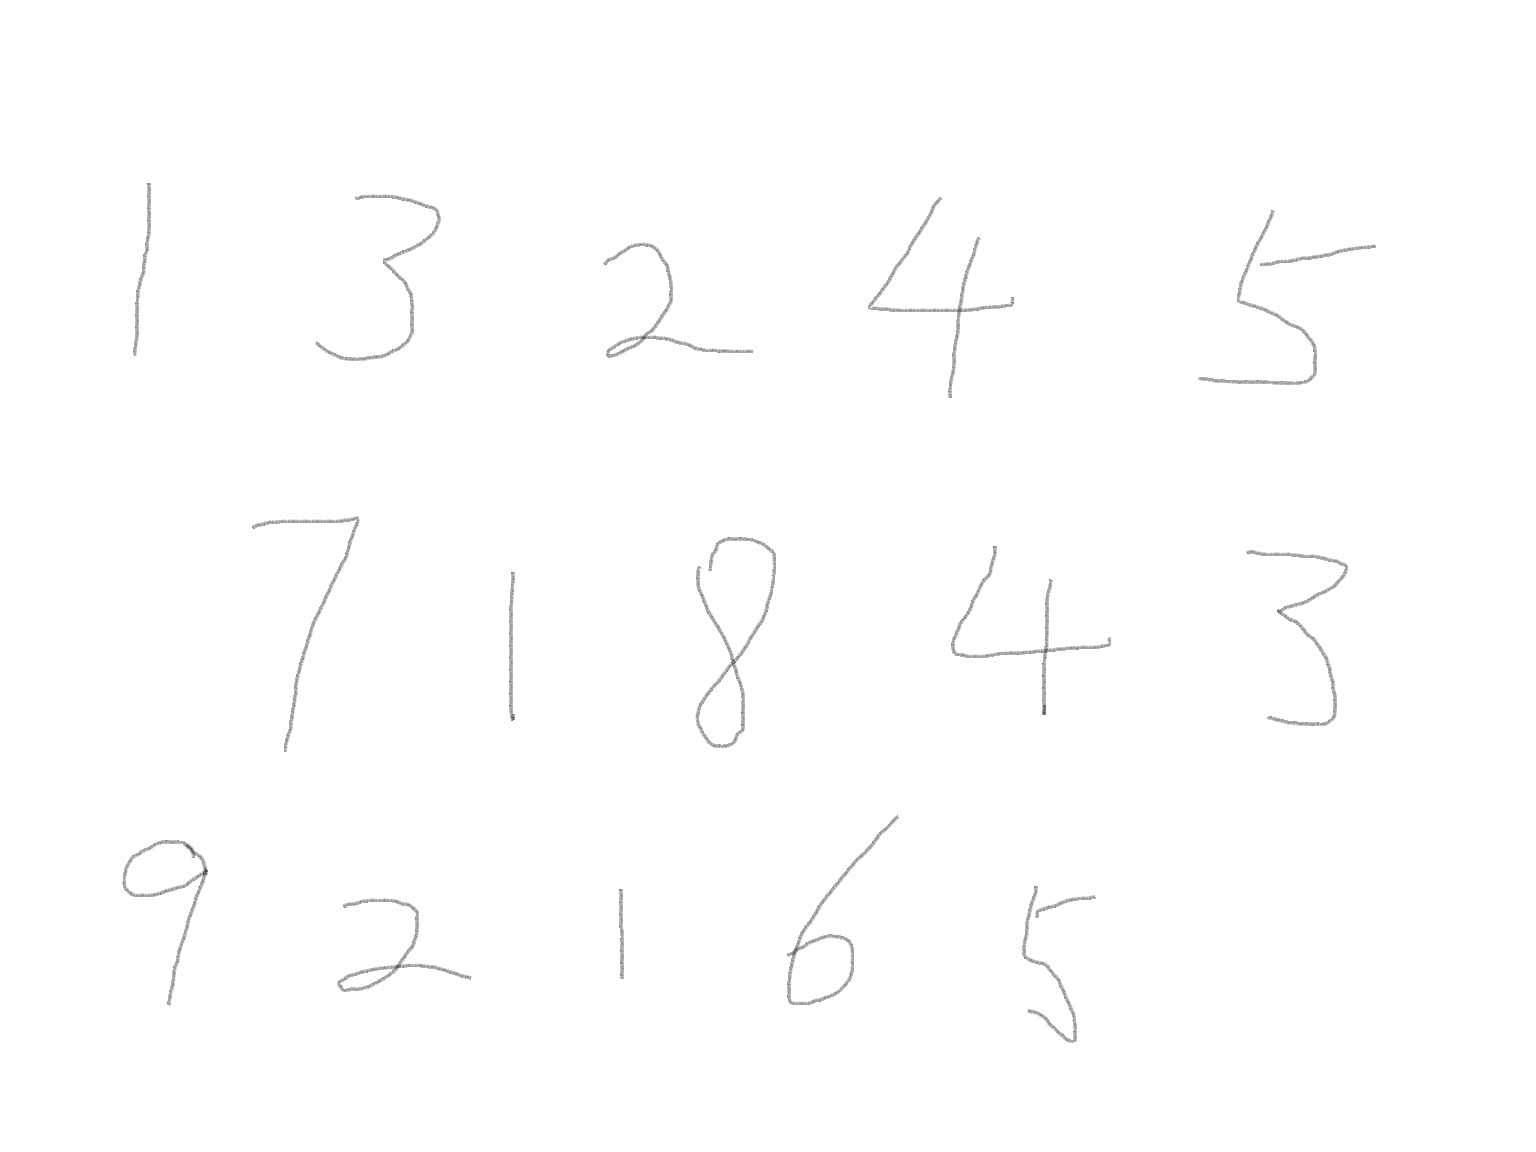 1 3 2 4 5
7 1 8 4 3
9 2 1 6 5